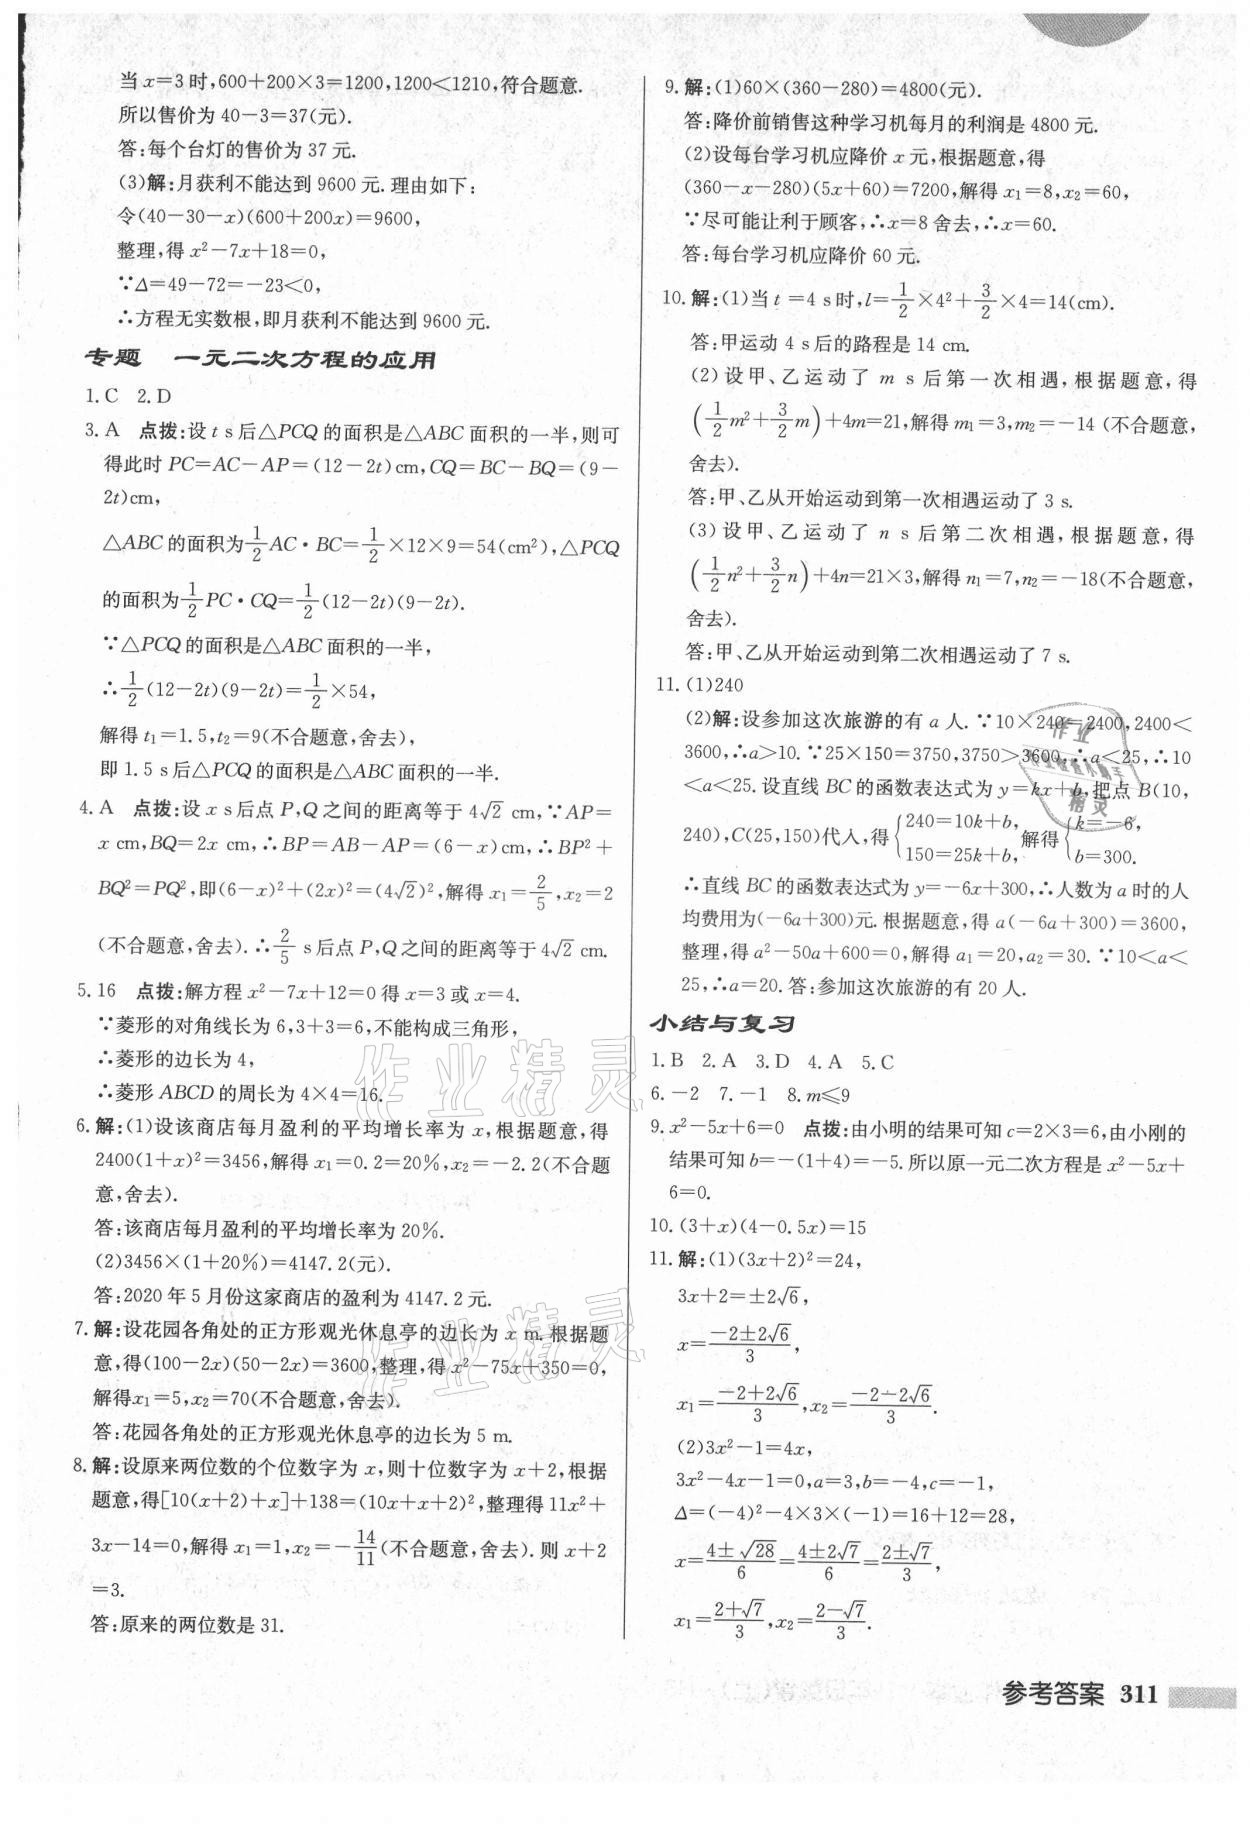 当 x=3 时,600+200×3=1200,1200<1210,符合题意.
所以售价为 40-3=37(元).
答:每个台灯的售价为 37 元.
(3)解:月获利不能达到 9600 元.理由如下:
令(40-30-x)(600+200x)=9600,
整理,得 x²-7x+18=0,
∵Δ=49-72=-23<0,
∴方程无实数根,即月获利不能达到 9600 元.
专题 一元二次方程的应用
1.C 2.D
3.A 点拨:设 t s后△PCQ 的面积是△ABC 面积的一半,则可
得此时 PC=AC-AP=(12-2t)cm,CQ=BC-BQ=(9-
2t)cm,
△ABC 的面积为1/2 AC·BC=1/2×12×9=54(cm²),△PCQ
的面积为1/2 PC·CQ=1/2(12-2t)(9-2t).
∵△PCQ 的面积是△ABC 面积的一半,
∴1/2(12-2t)(9-2t)=1/2×54,
解得 t₁=1.5,t₂=9(不合题意,舍去),
即 1.5 s后△PCQ 的面积是△ABC 面积的一半.
4.A 点拨:设 x s后点 P,Q 之间的距离等于 4√2 cm,∵AP=
x cm,BQ=2x cm,∴BP=AB-AP=(6-x)cm,∴BP²+
BQ²=PQ²,即(6-x)²+(2x)²=(4√2)²,解得 x₁=2/5,x₂=2
(不合题意,舍去).∴2/5 s后点 P,Q 之间的距离等于 4√2 cm.
5.16 点拨:解方程 x²-7x+12=0 得 x=3 或 x=4.
∵菱形的对角线长为 6,3+3=6,不能构成三角形,
∴菱形的边长为 4,
∴菱形 ABCD 的周长为 4×4=16.
6.解:(1)设该商店每月盈利的平均增长率为 x,根据题意,得
2400(1+x)²=3456,解得 x₁=0.2=20%,x₂=-2.2(不合题
意,舍去).
答:该商店每月盈利的平均增长率为 20%.
(2)3456×(1+20%)=4147.2(元).
答:2020 年 5 月份这家商店的盈利为 4147.2 元.
7.解:设花园各角处的正方形观光休息亭的边长为 x m.根据题
意,得(100-2x)(50-2x)=3600,整理,得 x²-75x+350=0,
解得x₁=5,x₂=70(不合题意,舍去).
答:花园各角处的正方形观光休息亭的边长为 5 m.
8.解:设原来两位数的个位数字为 x,则十位数字为 x+2,根据
题意,得[10(x+2)+x]+138=(10x+x+2)²,整理得 11x²+
3x-14=0,解得 x₁=1,x₂=-14/11(不合题意,舍去).则 x+2
=3.
答:原来的两位数是 31.
9.解:(1)60×(360-280)=4800(元).
答:降价前销售这种学习机每月的利润是 4800 元.
(2)设每台学习机应降价 x 元,根据题意,得
(360-x-280)(5x+60)=7200,解得 x₁=8,x₂=60,
∵尽可能让利于顾客,∴x=8 舍去,∴x=60.
答:每台学习机应降价 60 元.
10.解:(1)当 t =4 s时,l=1/2×4²+3/2×4=14(cm).
答:甲运动 4 s后的路程是 14 cm.
(2)设甲、乙运动了 m s 后第一次相遇,根据题意,得
(1/2 m²+3/2 m)+4m=21,解得 m₁=3,m₂=-14 (不合题意,
舍去).
答:甲、乙从开始运动到第一次相遇运动了 3 s.
(3)设甲、乙运动了 n s 后第二次相遇,根据题意,得
(1/2 n²+3/2 n)+4n=21×3,解得 n₁=7,n₂=-18(不合题意,
舍去).
答:甲、乙从开始运动到第二次相遇运动了 7 s.
11.(1)240
(2)解:设参加这次旅游的有 a 人.∵10×240=2400,2400<
3600,∴a>10.∵25×150=3750,3750>3600,∴a<25,∴10
<a<25.设直线 BC 的函数表达式为 y=kx+b,把点 B(10,
240),C(25,150)代入,得{240=10k+b, 150=25k+b, 解得{k=-6, b=300.
∴直线 BC 的函数表达式为 y=-6x+300,∴人数为 a 时的人
均费用为(-6a+300)元.根据题意,得 a(-6a+300)=3600,
整理,得 a²-50a+600=0,解得 a₁=20,a₂=30.∵10<a<
25,∴a=20.答:参加这次旅游的有 20 人.
小结与复习
1.B 2.A 3.D 4.A 5.C
6.-2 7.-1 8.m≤9
9.x²-5x+6=0 点拨:由小明的结果可知 c=2×3=6,由小刚的
结果可知 b=-(1+4)=-5.所以原一元二次方程是 x²-5x+
6=0.
10.(3+x)(4-0.5x)=15
11.解:(1)(3x+2)²=24,
3x+2=±2√6,
x=(-2±2√6)/3,
x₁=(-2+2√6)/3,x₂=(-2-2√6)/3.
(2)3x²-1=4x,
3x²-4x-1=0,a=3,b=-4,c=-1,
Δ=(-4)²-4×3×(-1)=16+12=28,
x=(4±√28)/6=(4±2√7)/6=(2±√7)/3,
x₁=(2+√7)/3,x₂=(2-√7)/3.
参考答案 311
作业精灵
作业精灵